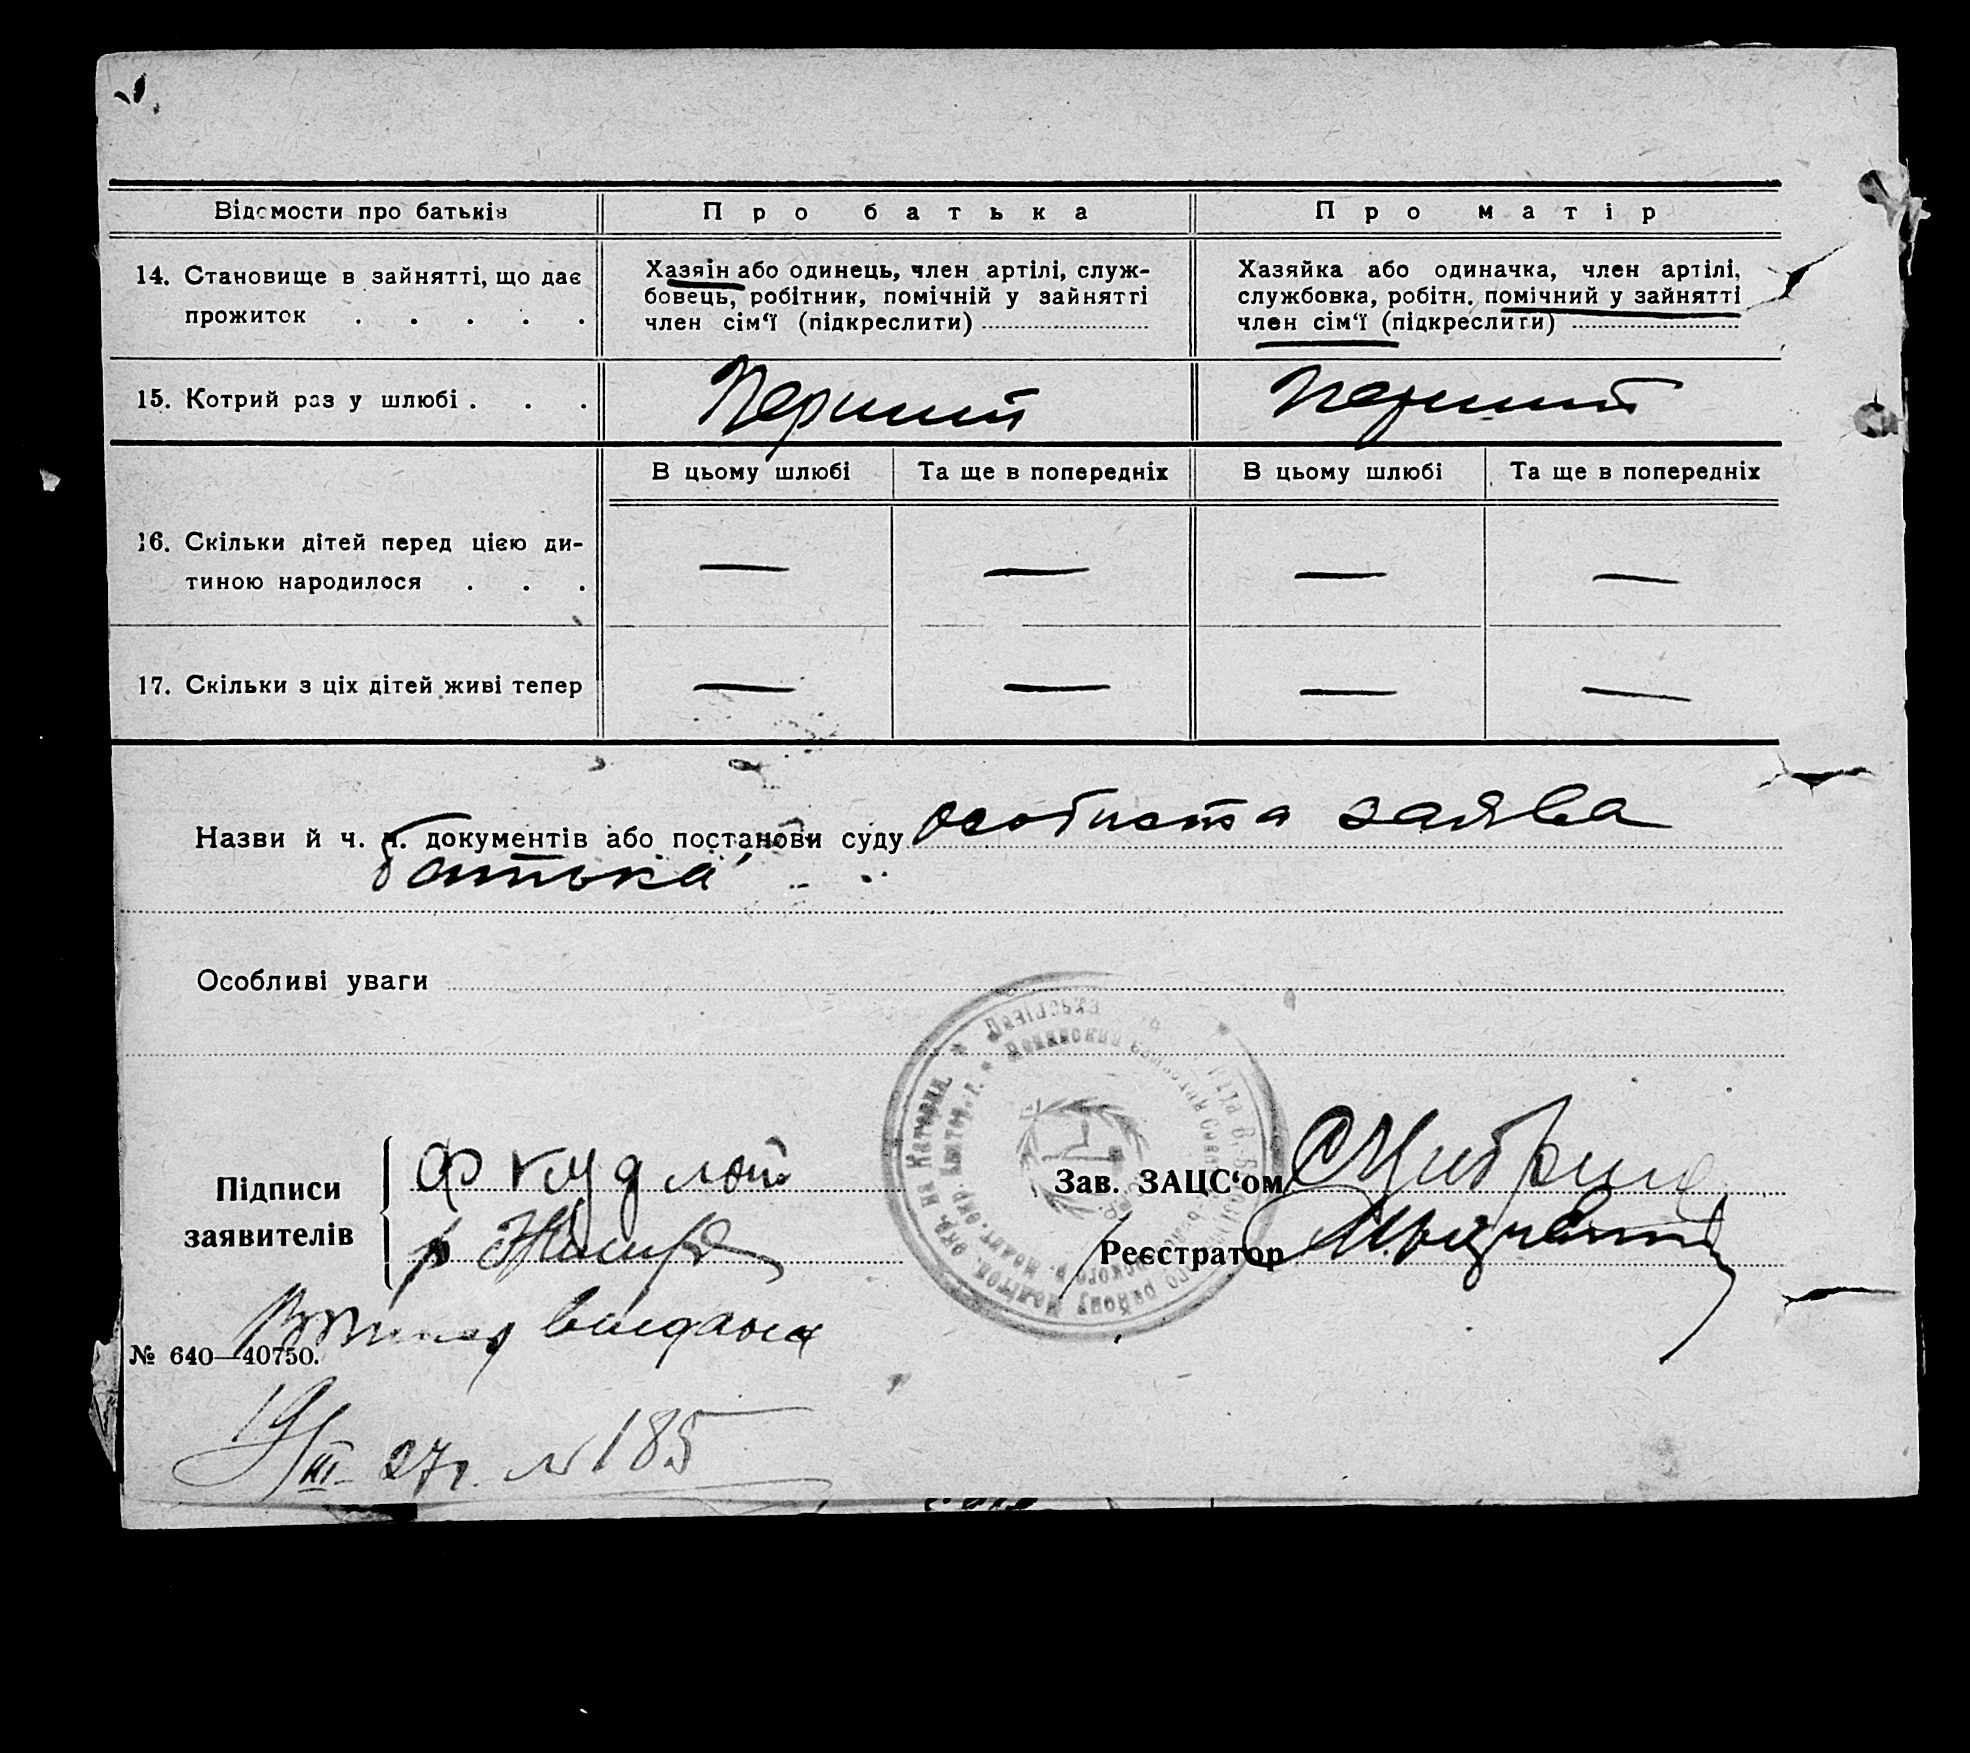 Відомости про батьків
Про батька
Про матір
14. Становище в зайнятті, що дає
прожиток . . . . .
Хазяін або одинець, член артілі, служ-
бовець, робітник, помічній у зайнятті
член сім‘ї (підкреслити)
Хазяйка або одиначка, член артілі,
службовка, робітн. помічний у зайнятті
член сім‘ї (підкреслити)
15. Котрий раз у шлюбі . . .
Перший
Перший
В цьому шлюбі
Та ще в попередніх
В цьому шлюбі
Та ще в попередніх
16. Скільки дітей перед цією ди-
тиною народилося . . .
— — — —
17. Скільки з ціх дітей живі тепер
— — — —
Назви й ч. ч. документів або постанови суду особиста заява
батька
Особливі уваги
Підписи
заявителів
Ф Кудлай
Зав. ЗАЦС‘ом
Реєстратор
видана
№ 640—40750.
19/III-27г. № 185